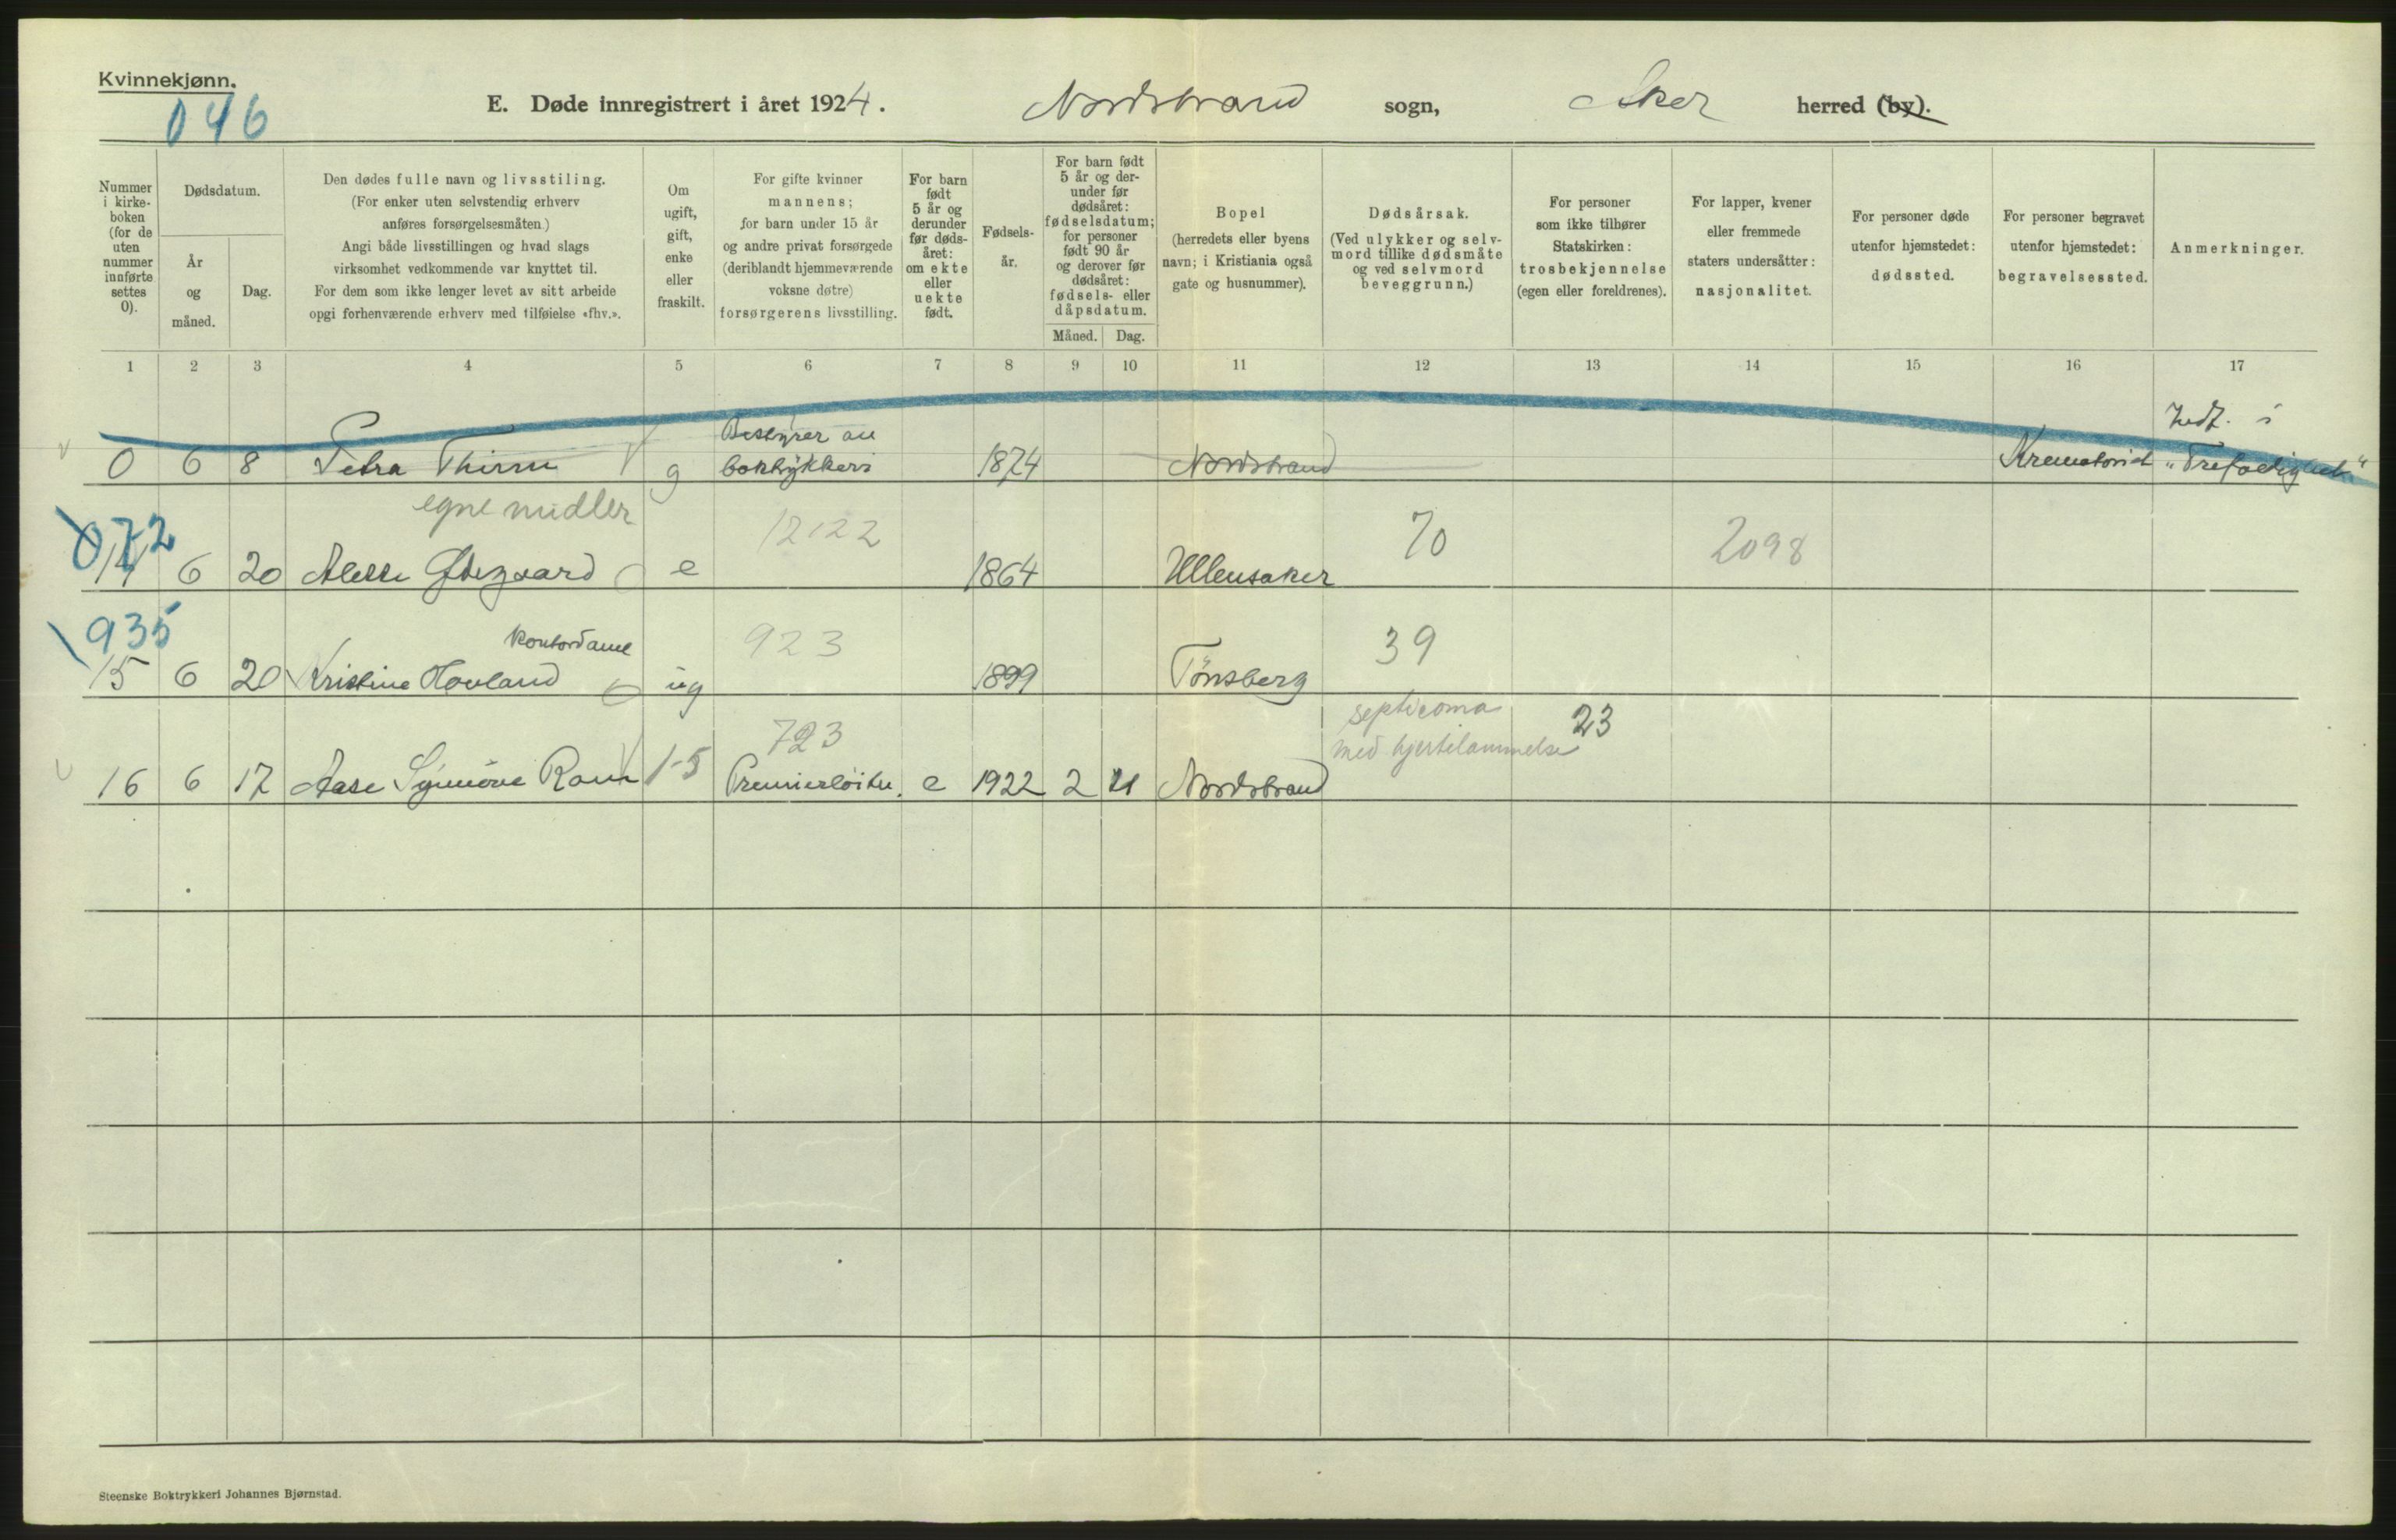 Kvinnekjønn.
046
E. Døde innregistrert i året 1924. Nordstrand sogn, Aker herred (by).
Nummer i kirke-boken (for de uten nummer innførte settes 0).
Dødsdatum.
År og måned.
Dag.
Den dødes fulle navn og livsstilling.
(For enker uten selvstendig erhverv
anføres forsørgelsesmåten.)
Angi både livsstillingen og hvad slags
virksomhet vedkommende var knyttet til.
For dem som ikke lenger levet av sitt arbeide
opgi forhenværende erhverv med tilføielse «fhv.».
Om
ugift,
gift,
enke
eller
fraskilt.
For gifte kvinner
mannens;
for barn under 15 år
og andre privat forsørgede
(deriblandt hjemmeværende
voksne døtre)
forsørgerens livsstilling.
For barn
født
5 år og
derunder
før døds-
året:
om ekte
eller
uekte
født.
Fødsels-
år.
For barn født
5 år og der-
under før
dødsåret:
fødselsdatum;
for personer
født 90 år
og derover før
dødsåret:
fødsels- eller
dåpsdatum.
Måned. Dag.
Bopel
(herredets eller byens
navn; i Kristiania også
gate og husnummer).
Dødsårsak.
(Ved ulykker og selv-
mord tillike dødsmåte
og ved selvmord
beveggrunn.)
For personer
som ikke tilhører
Statskirken:
trosbekjennelse
(egen eller foreldrenes).
For lapper, kvener
eller fremmede
staters undersåtter:
nasjonalitet.
For personer døde
utenfor hjemstedet:
dødssted.
For personer begravet
utenfor hjemstedet:
begravelsessted.
Anmerkninger.
1 2 3 4 5 6 7 8 9 10 11 12 13 14 15 16 17
Bestyrer av i
0 6 8 Petra g boktykkeri 1874 Nordstrand Krematoriet
egne midler
072 12122 70 2098
14 6 20 Ødegaard e 1864 Ullensaker
935 kontordame 923 39
15 6 20 Kristine Hovland ug 1899 Tönsberg
723 septicoma 23
med hjertelammelse
16 6 17 Aase Synnöve 1-5 Premierløitn. e 1922 2 21 Nordstrand
Steenske Boktrykkeri Johannes Bjørnstad.